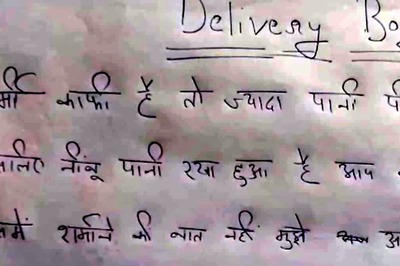 Delivery Bo
मी काफी है तो ज्यादा पानी
नींबू पानी रखा हुआ है आप
शर्माने की बात नहीं मुझे